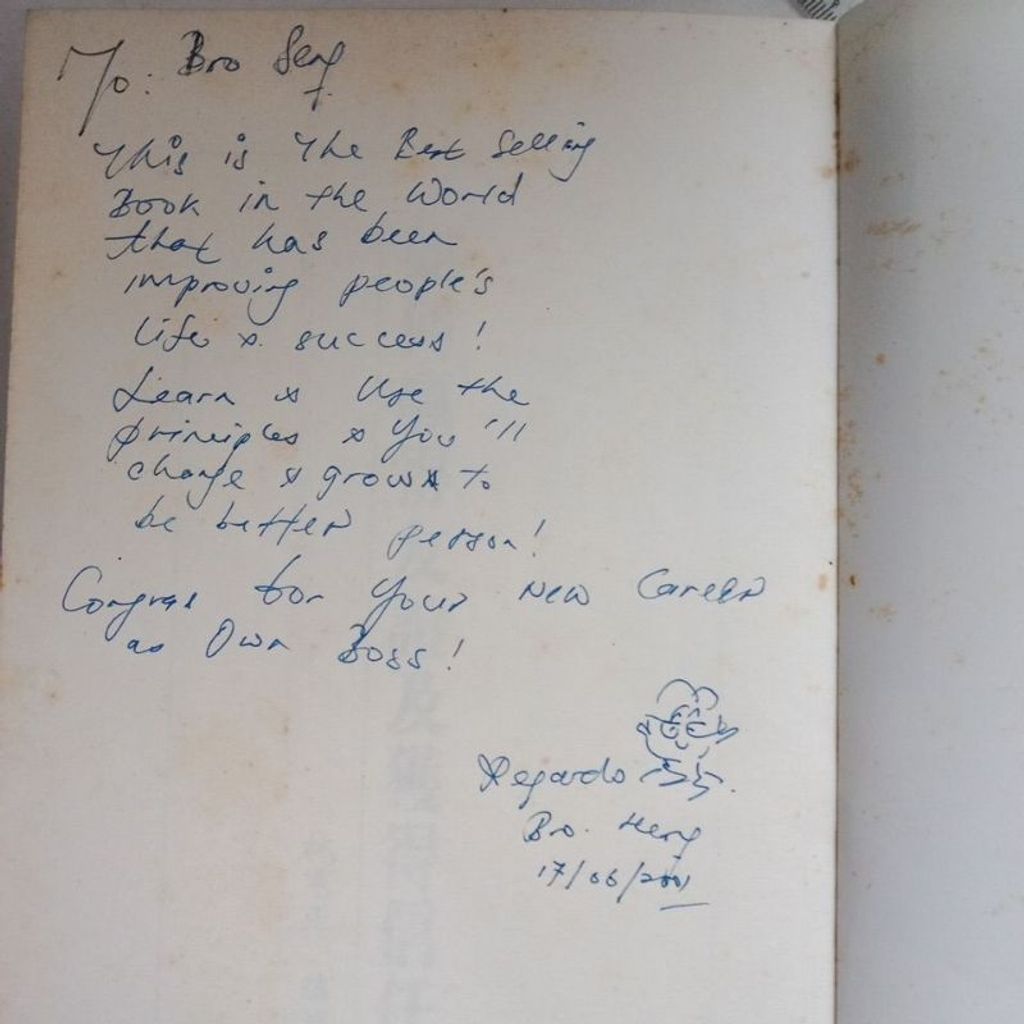 To: Bro Seng
This is The Best Selling
Book in the World
that has been
improving people's
life & success!
Learn & Use the
principles & You'll
change & grow to
be better person!
Congras for Your New Career
as Own Boss!
Regards
Bro. Heng
17/06/2001